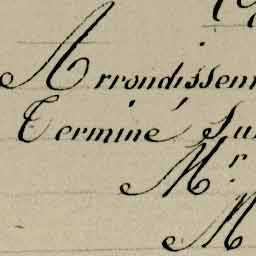 Arrondissem
Terminé, Su
Mr.
M